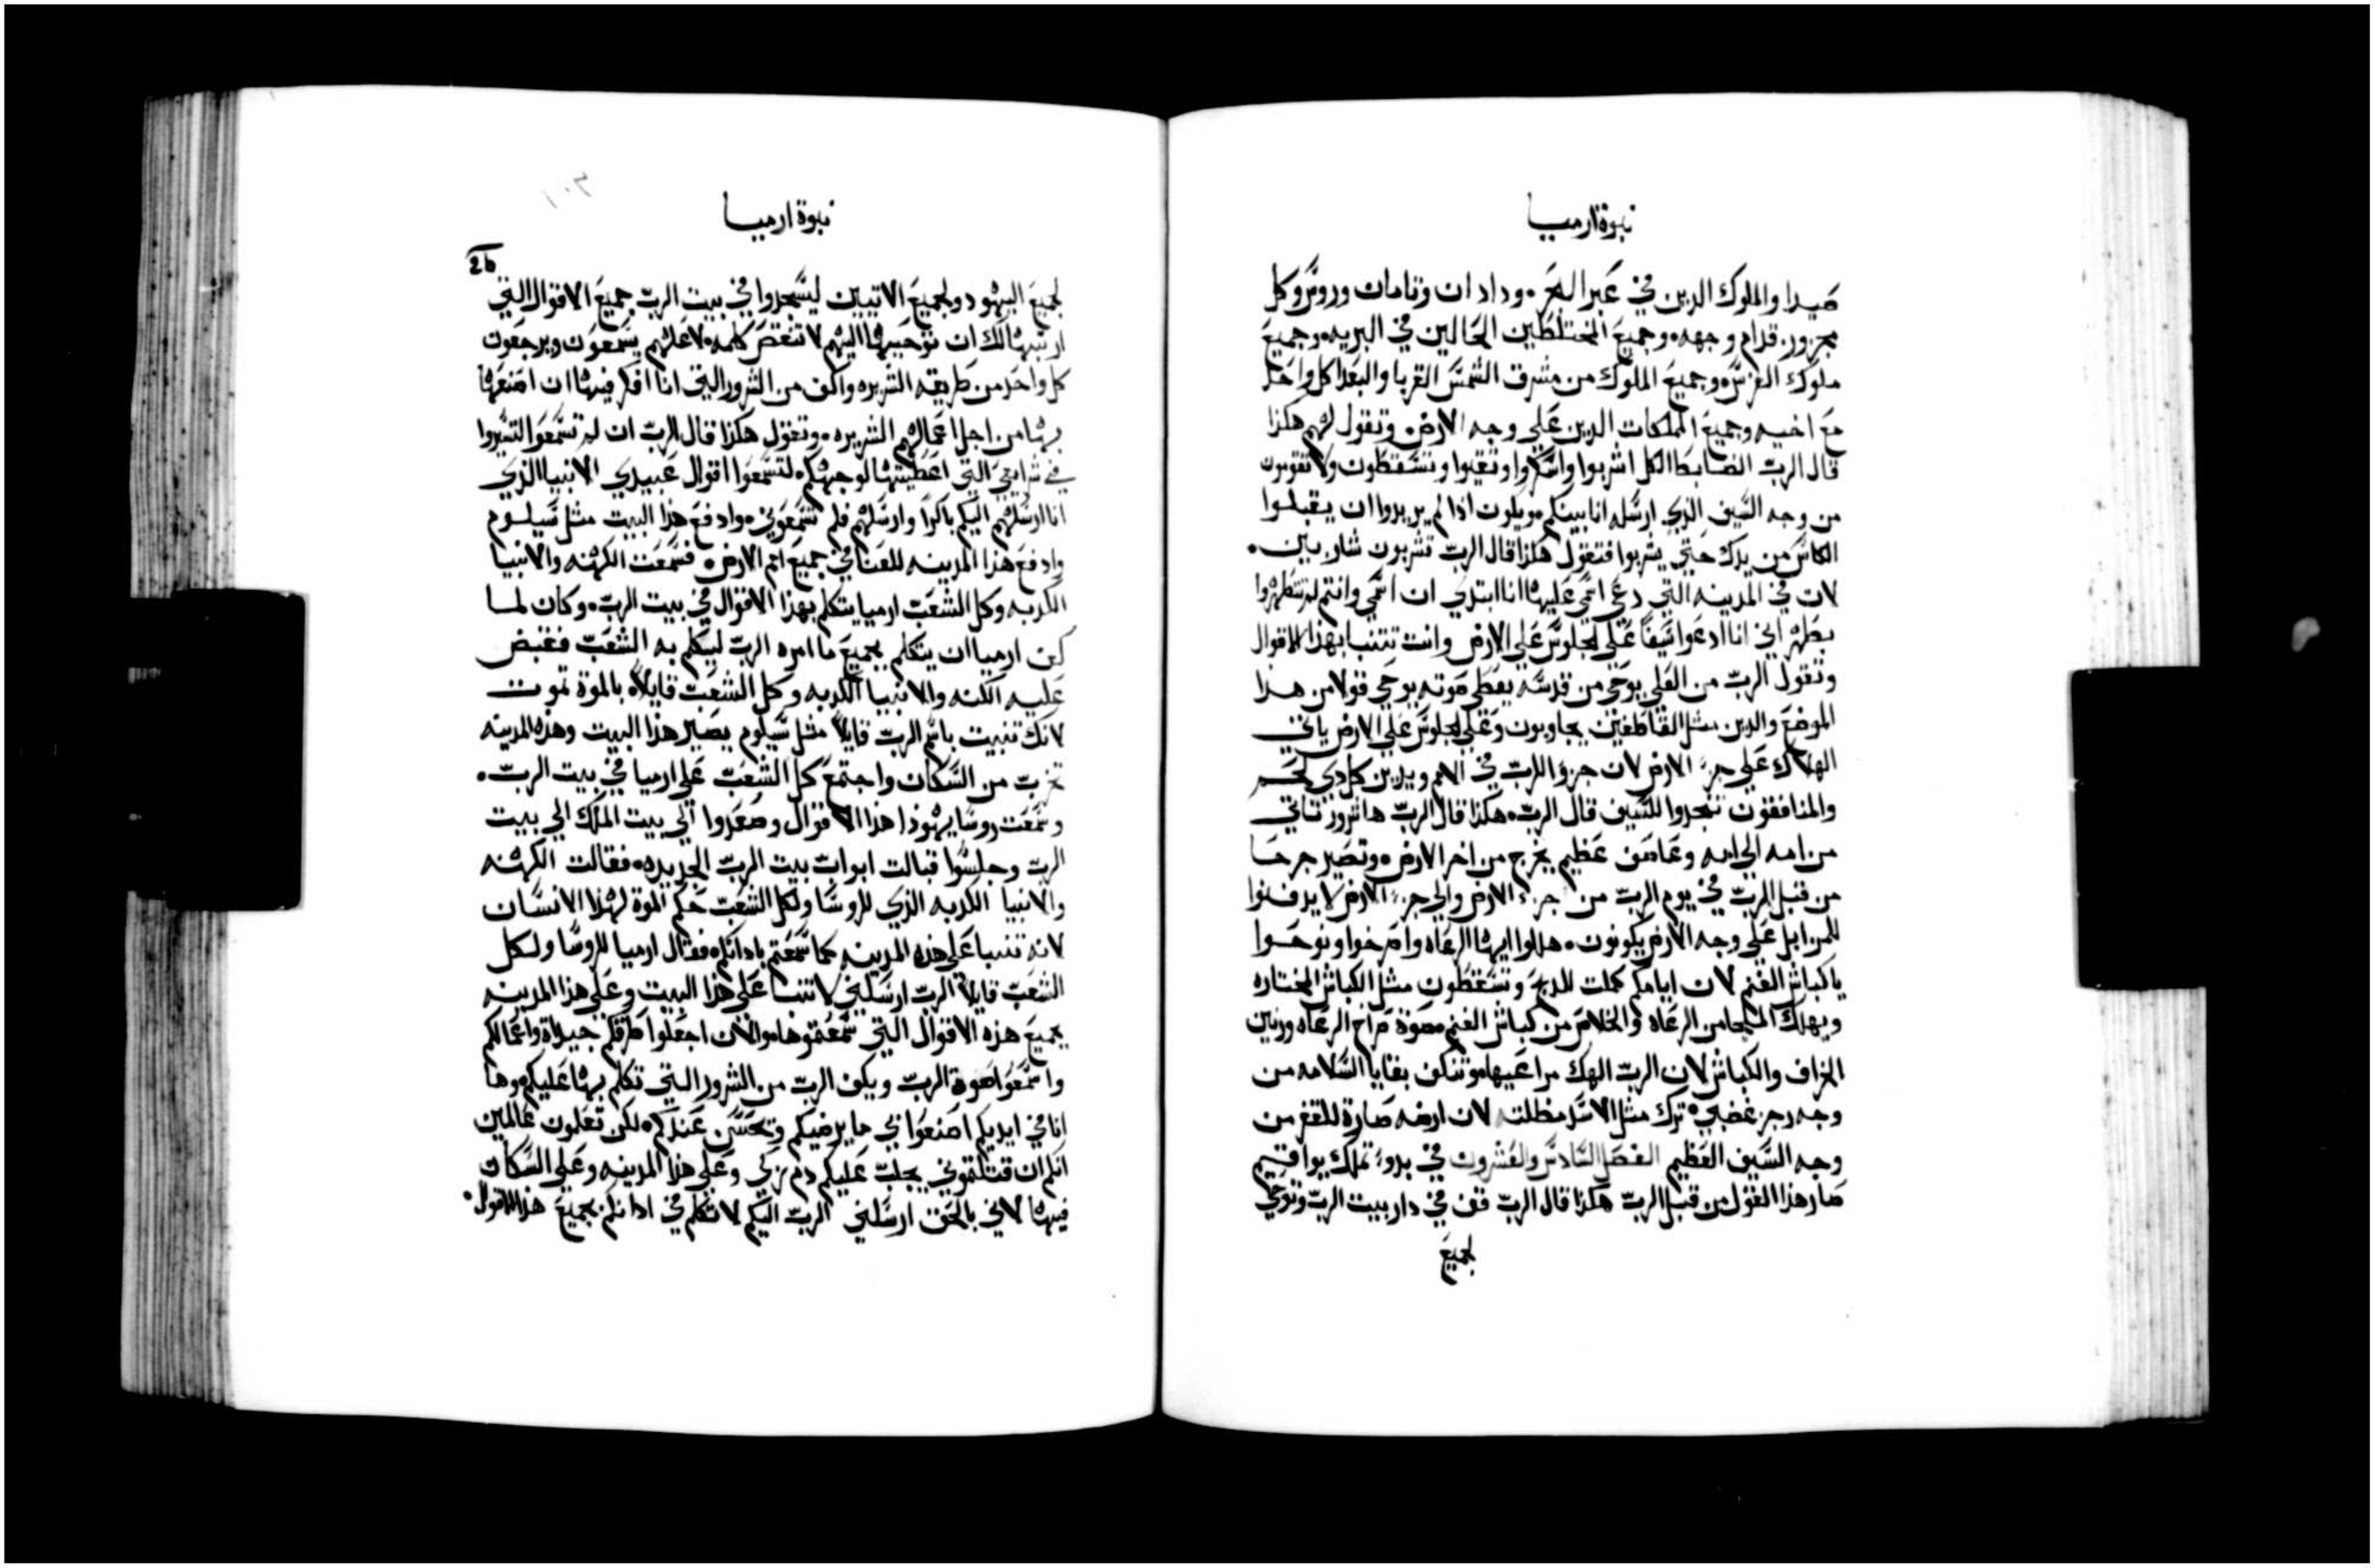 نبوة ارميا
صيدا والملوك الدين في عبر البحر. ودادان وتامان وروس وكل
مجزوز. قدام وجهه وجميع المختلطين الحالين في البريه. وجميع
ملوك الفرس. وجميع الملوك من مشرق الشمس القربا والبعدا كل واحد
مع اخيه وجميع الملكات الدين علي وجه الارض. وتقول لهم هكذا
قال الرب الضابط الكل اشربوا واسكروا وتقيوا وتسقطون ولا تقومون
من وجه السيف الذي ارسله انا بينكم. ويكون اذا لم يريدوا ان يقبلوا
الكاس من يدك حتي يشربوا فتقول هكذا قال الرب تشربون شاربين.
لان في المدينه التي دعي اسمي عليها انا ابتدي ان اسمي وانتم لم تتطهروا
بطهر اني انا ادعوا سيفا علي الجلوس علي الارض وانت تتنبا بهذا الاقوال
وتقول الرب من العلي يوحي من قدسه يعطي صوته يوحي قولا من هذا
الموضع والدين مثل القاطفين يجاوبون وعلي الجلوس علي الارض ياتي
الهلاك علي جزء الارض لان جزؤ الرب في الامم ويدين كل دي لحم
والمنافقون تنجدوا للسيف قال الرب. هكذا قال الرب ها شرور تاتي
من امه الي امه وعاصف عظيم يخرج من اخر الارض. وتصير جرحا
من قبل الرب في يوم الرب من جزء الارض والي جزء الارض لا يدفنوا
للمزابل علي وجه الارض يكونون. هللوا ايها الرعاه واصرخوا ونوحوا
يا كباش الغنم لان ايامكم كملت للدبح وتسقطون مثل الكباش المختاره
ويهلك الملجا من الرعاه والخلاص من كباش الغنم صوة صراخ الرعاه ورنين
الخراف والكباش لان الرب الهك مراعيها وتتكن بقايا السلامه من
وجه رجز غضبي ترك مثل الاسد مظلته لان ارضه صارة للقفر من
وجه السيف العظيم الفصل السادس والعشرون في بدوء تملك يواقيم
صار هذا القول من قبل الرب هكذا قال الرب قف في دار بيت الرب وتوحي
لجميع
١٠٣
نبوة ارميا
26
لجميع اليهود ولجميع الاتيين ليسجدوا في بيت الرب جميع الاقوال التي
ارتبها لك ان توحيها اليهم لا تنقص كلمه. لاعلهم يسمعون ويرجعون
كل واحد من طريقه الشريره واكف من الشرور التي انا افكر فيها ان اصنعها
بها من اجل اعمالهم الشريره. وتقول هكذا قال الرب ان لم تسمعوا لتسيروا
في شرايعي التي اعطيتها لوجهكم. لتسمعوا اقوال عبيدي الانبيا الذي
انا ارسلهم اليكم باكرا وارسلهم فلم تسمعوني. وادفع هذا البيت مثل سيلوم
وادفع هذا المدينه للعنا في جميع امم الارض. فسمعت الكهنه والانبيا
الكدبه وكل الشعب ارميا يتكلم بهذا الاقوال في بيت الرب. وكان لما
كف ارميا ان يتكلم بجميع ما امره الرب ليتكلم به الشعب فقبض
عليه الكنه والانبيا الكدبه وكل الشعب قايلا. بالموة تموت
لانك تنبيت باسم الرب قايلا مثل سيلوم يصير هذا البيت وهذه المدينه
تخرب من السكان واجتمع كل الشعب علي ارميا في بيت الرب.
وسمعت روسا يهوذا هذا الاقوال وصعدوا الي بيت الملك الي بيت
الرب وجلسوا قبالت ابواب بيت الرب الجديده. فقالت الكهنه
والانبيا الكدبه الذي للروسا ولكل الشعب حكم الموة لهذا الانسان
لانه تنبا علي هذه المدينه كما سمعتم بادانكم. فقال ارميا للروسا ولكل
الشعب قايلا الرب ارسلني لاتنبا علي هذا البيت وعلي هذا المدينه
بجميع هذه الاقوال التي سمعتموها. والان اجعلوا طرقكم جيداة واعمالكم
واسمعوا صوة الرب ويكف الرب من الشرور التي تكلم بها عليكم. وها
انا في ايديكم اصنعوا بي ما يرضيكم وتحسن عندكم. لكن تعلمون عالمين
انكم ان قتلتموني يجلب عليكم دم زكي وعلي هذا المدينه وعلي السكان
فيها لاني بالحق ارسلني الرب اليكم لاتكلم في ادانكم بجميع هذا الاقوال.